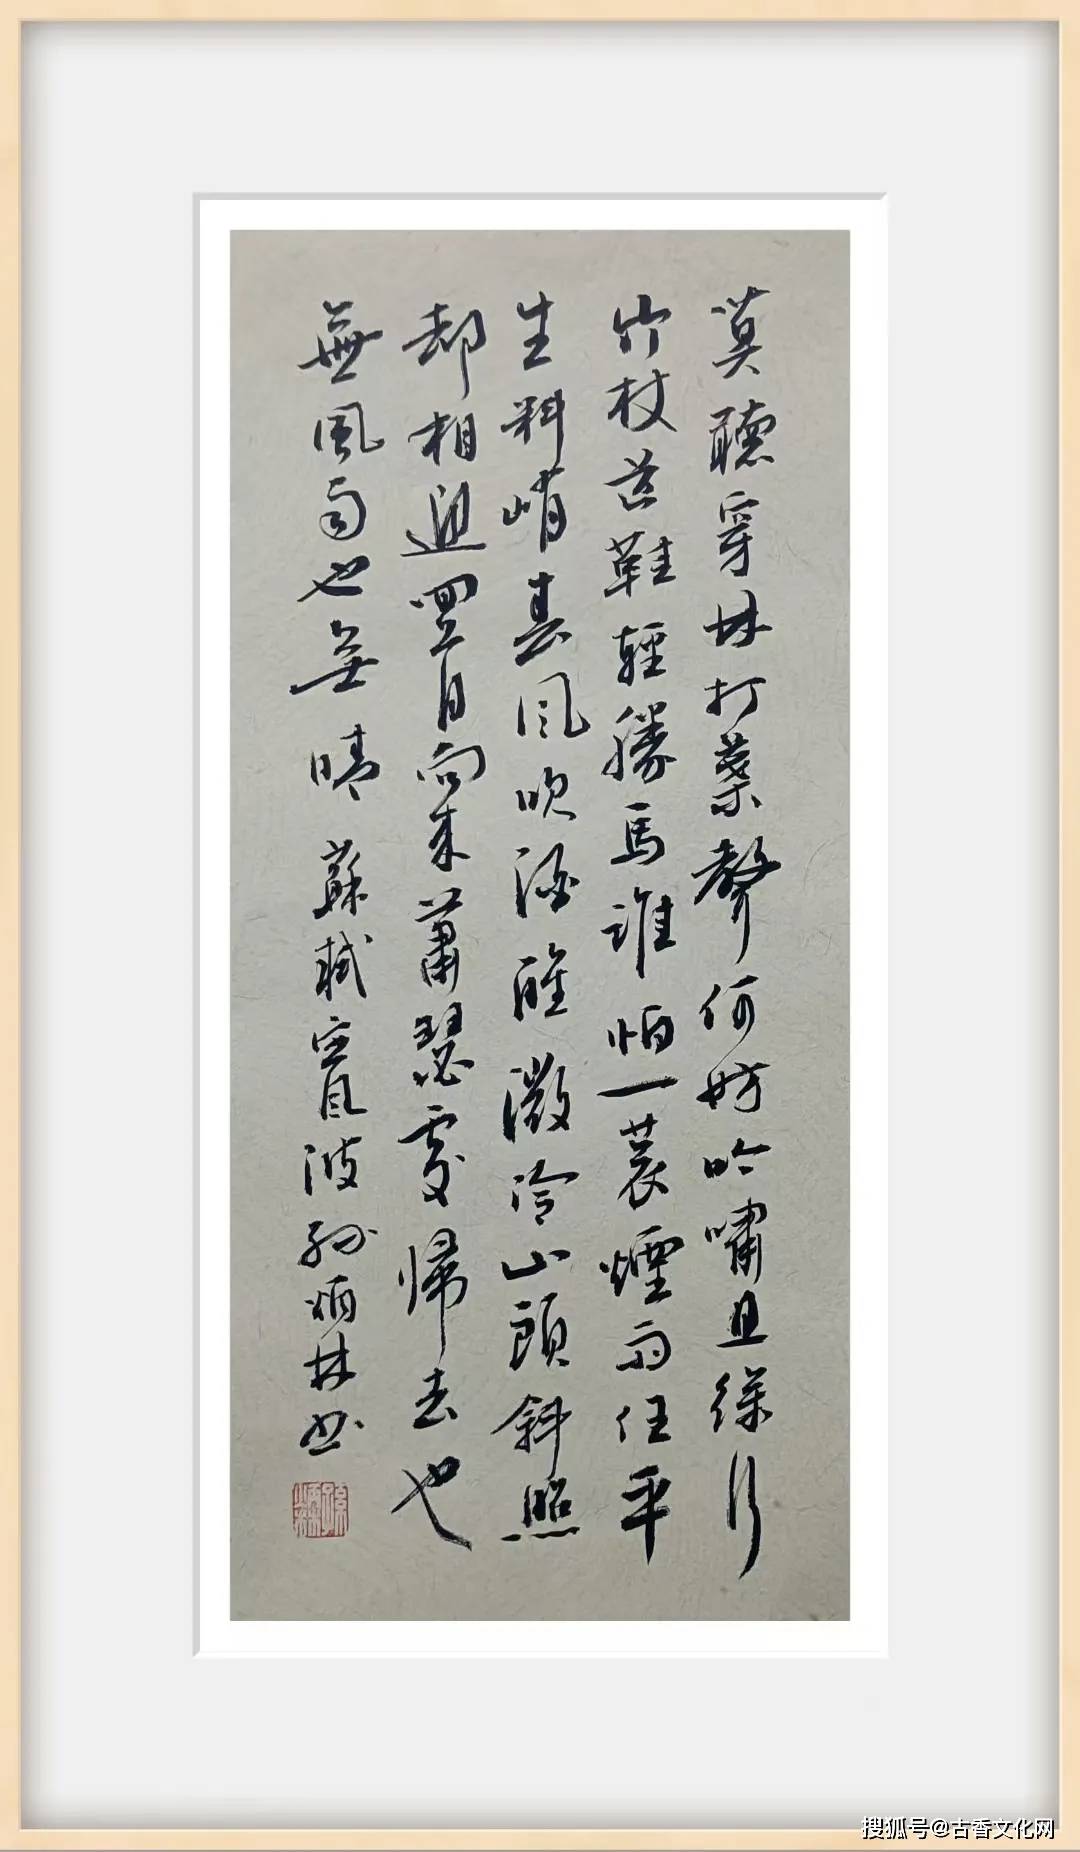 莫聽穿林打葉聲何妨吟嘯且徐行
竹杖芒鞋輕勝馬誰怕一蓑煙雨任平
生料峭春風吹酒醒微冷山頭斜照
却相迎回首向來蕭瑟處歸去也
無風雨也無晴 蘇軾定風波孫炳林書
搜狐号@古香文化网